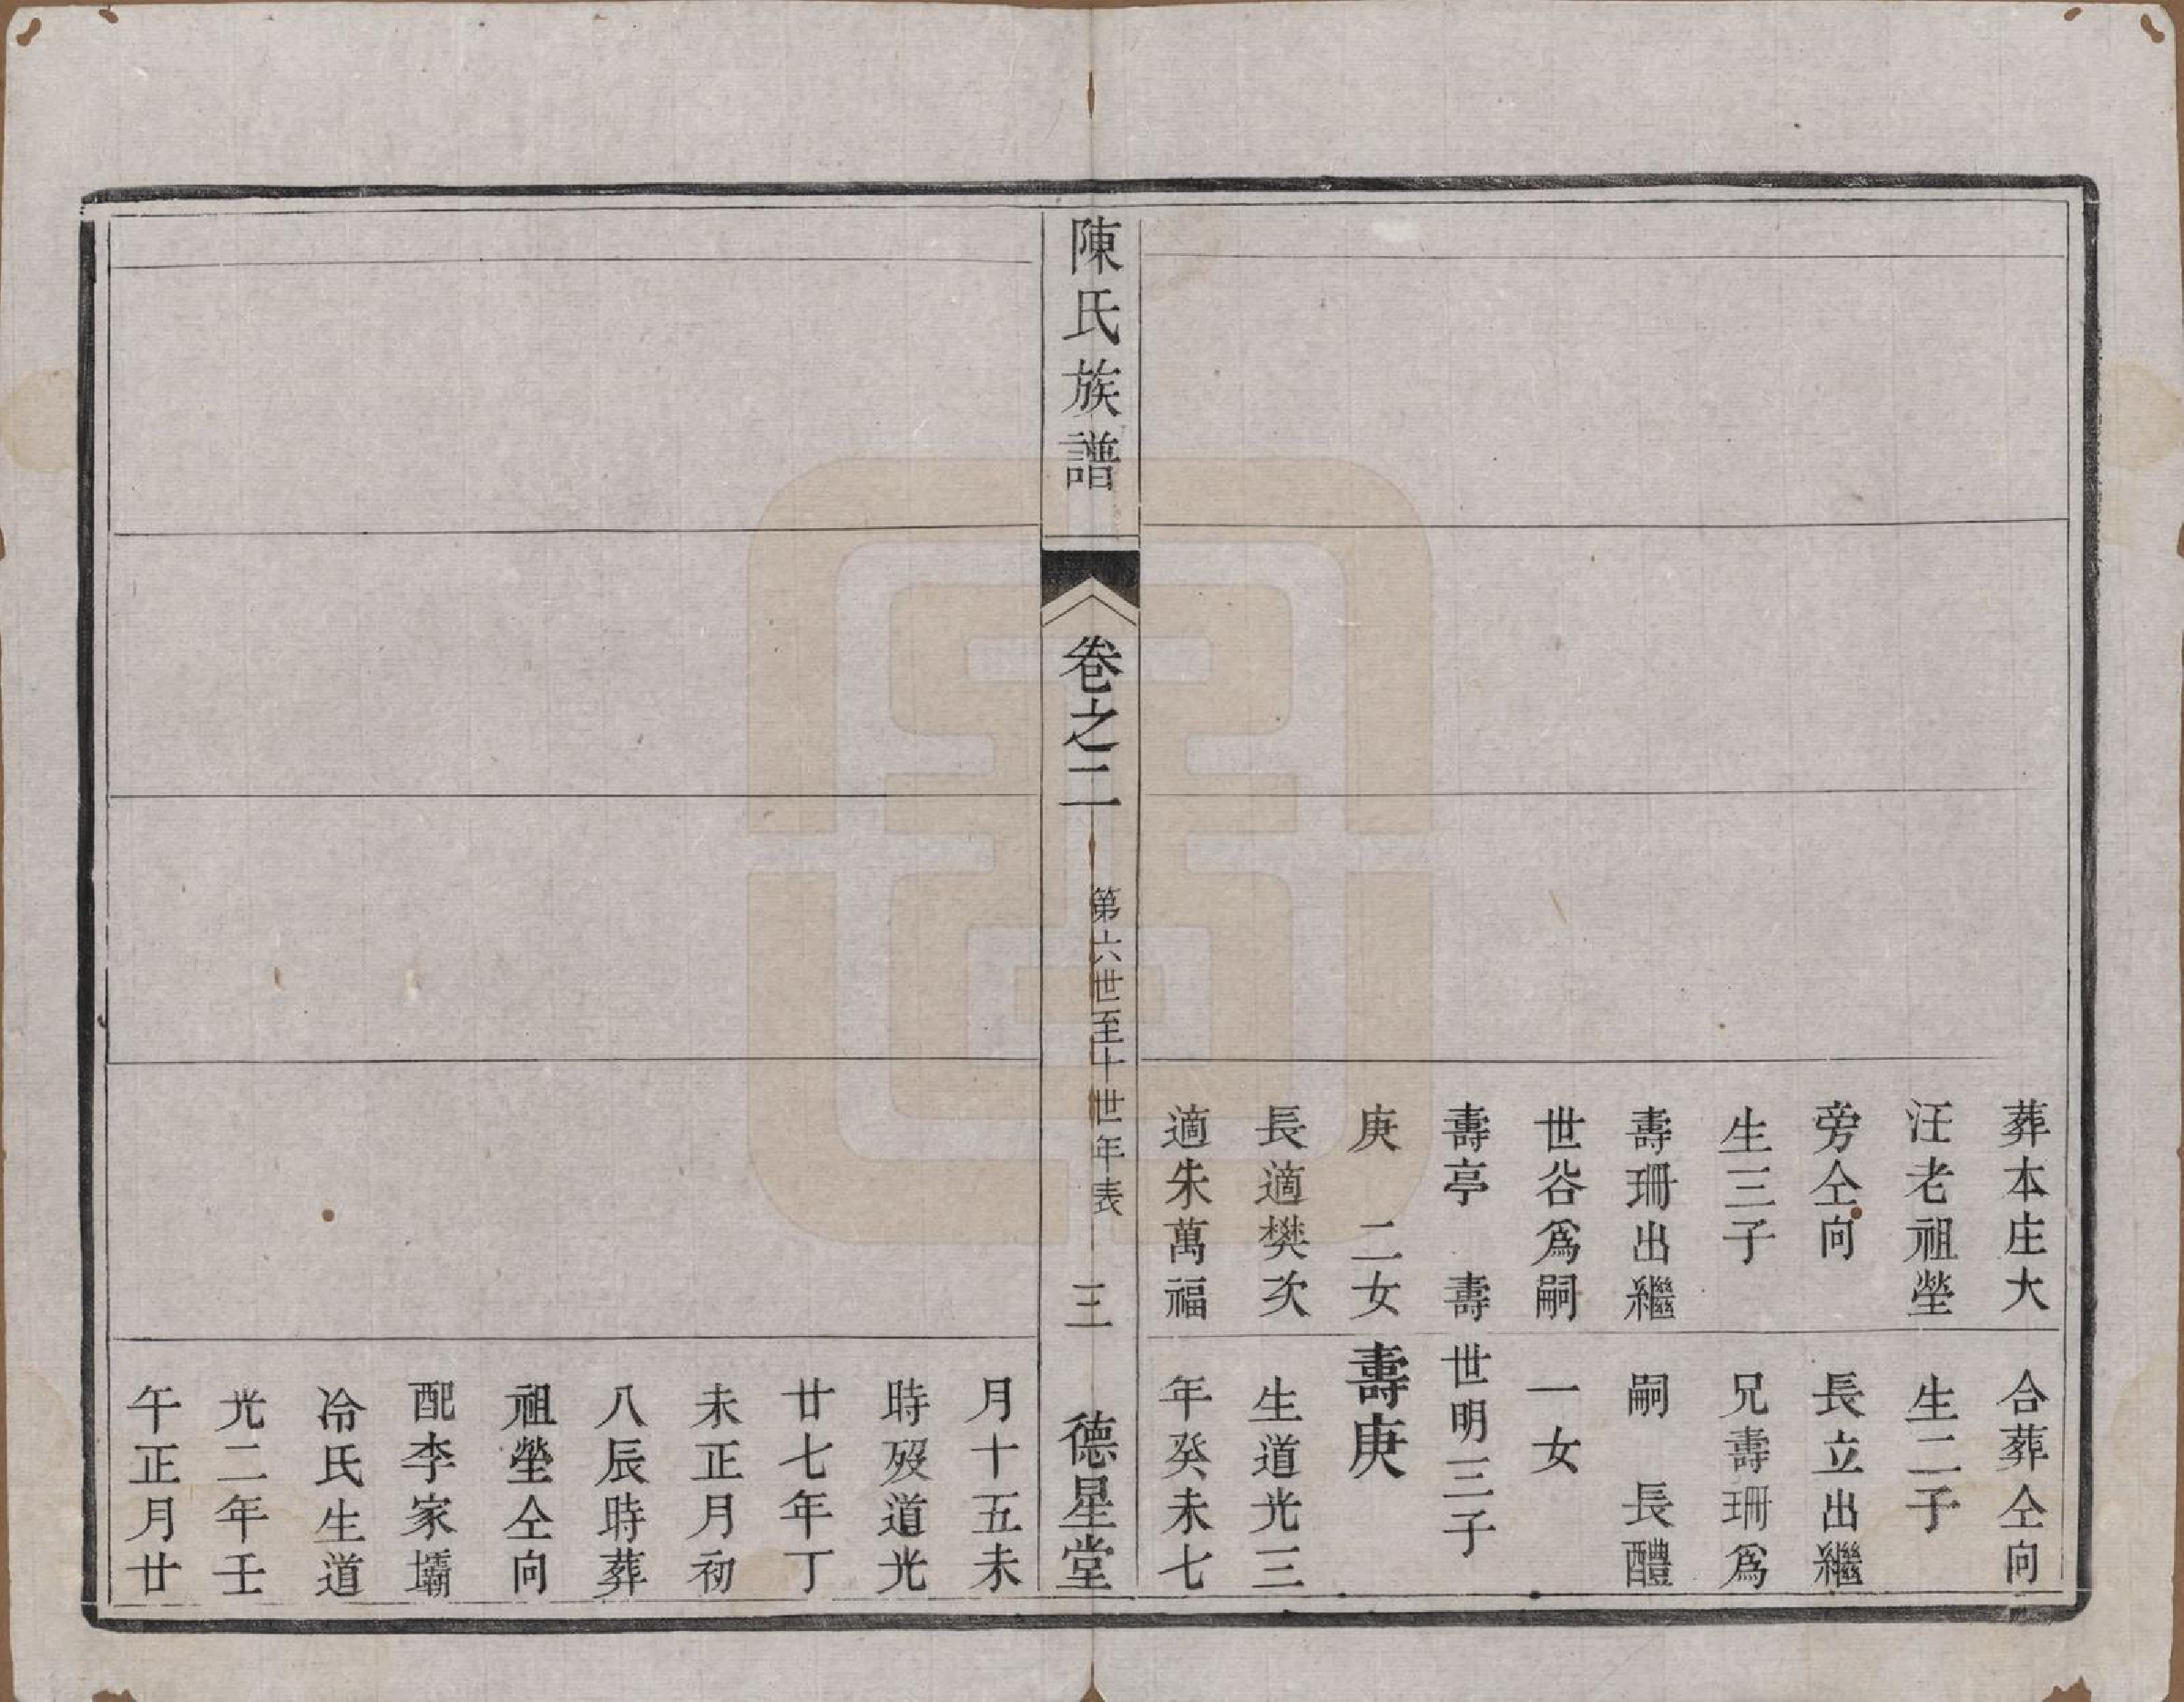 葬本庄大
汪老祖塋
旁仝向
生三子
壽珊出繼
世谷爲嗣
壽亭　壽
庚　二女
長適樊次
適朱萬福
合葬仝向
生二子
長立出繼
兄壽珊爲
嗣　長醴
一女
世明三子
壽庚
生道光三
年癸未七
陳氏族譜
卷之二
第六世至十世年表
三
德星堂
月十五未
時歿道光
廿七年丁
未正月初
八辰時葬
祖塋仝向
配李家壩
冷氏生道
光二年壬
午正月廿